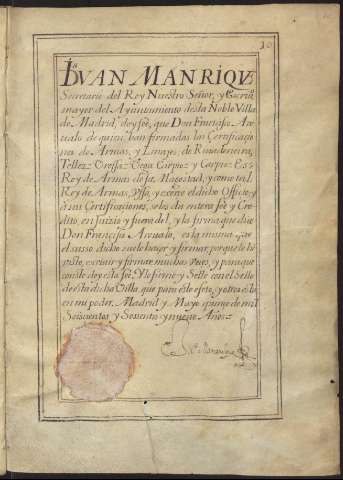 10
IVAN MANRIQVE
Secretario del Rey Nuestro Señor, y Escriu.
mayor del Ayuntamiento desta Noble Villa
de Madrid, doy fee, que Don Francisco Are
ualo de quien han firmadas las Certificacio
nes de Armas, y Linajes, de Ribadeneira,
Tellez Orossa Vega Carpio y Carpio Es
Rey de Armas de su Magestad, y como tal
Rey de Armas, Vssa, y exerce el dicho Officio, y
a sus Certificaciones, se les da entera fee y Cre
dito, en Juizio y fuera del, y la firma que dize
Don Francisco Areualo, es la misma que
el susso dicho suele hazer, y firmar, porque le he
visto, escriuir y firmar muchas veces, y para que
conste doy esta fee, Y lo firme y Selle con el Sello
de esta dicha Villa, que para este efeto, y otros esta
en mi poder, Madrid y Mayo primero de mil
Seiscientos y Sessenta y nueve Años